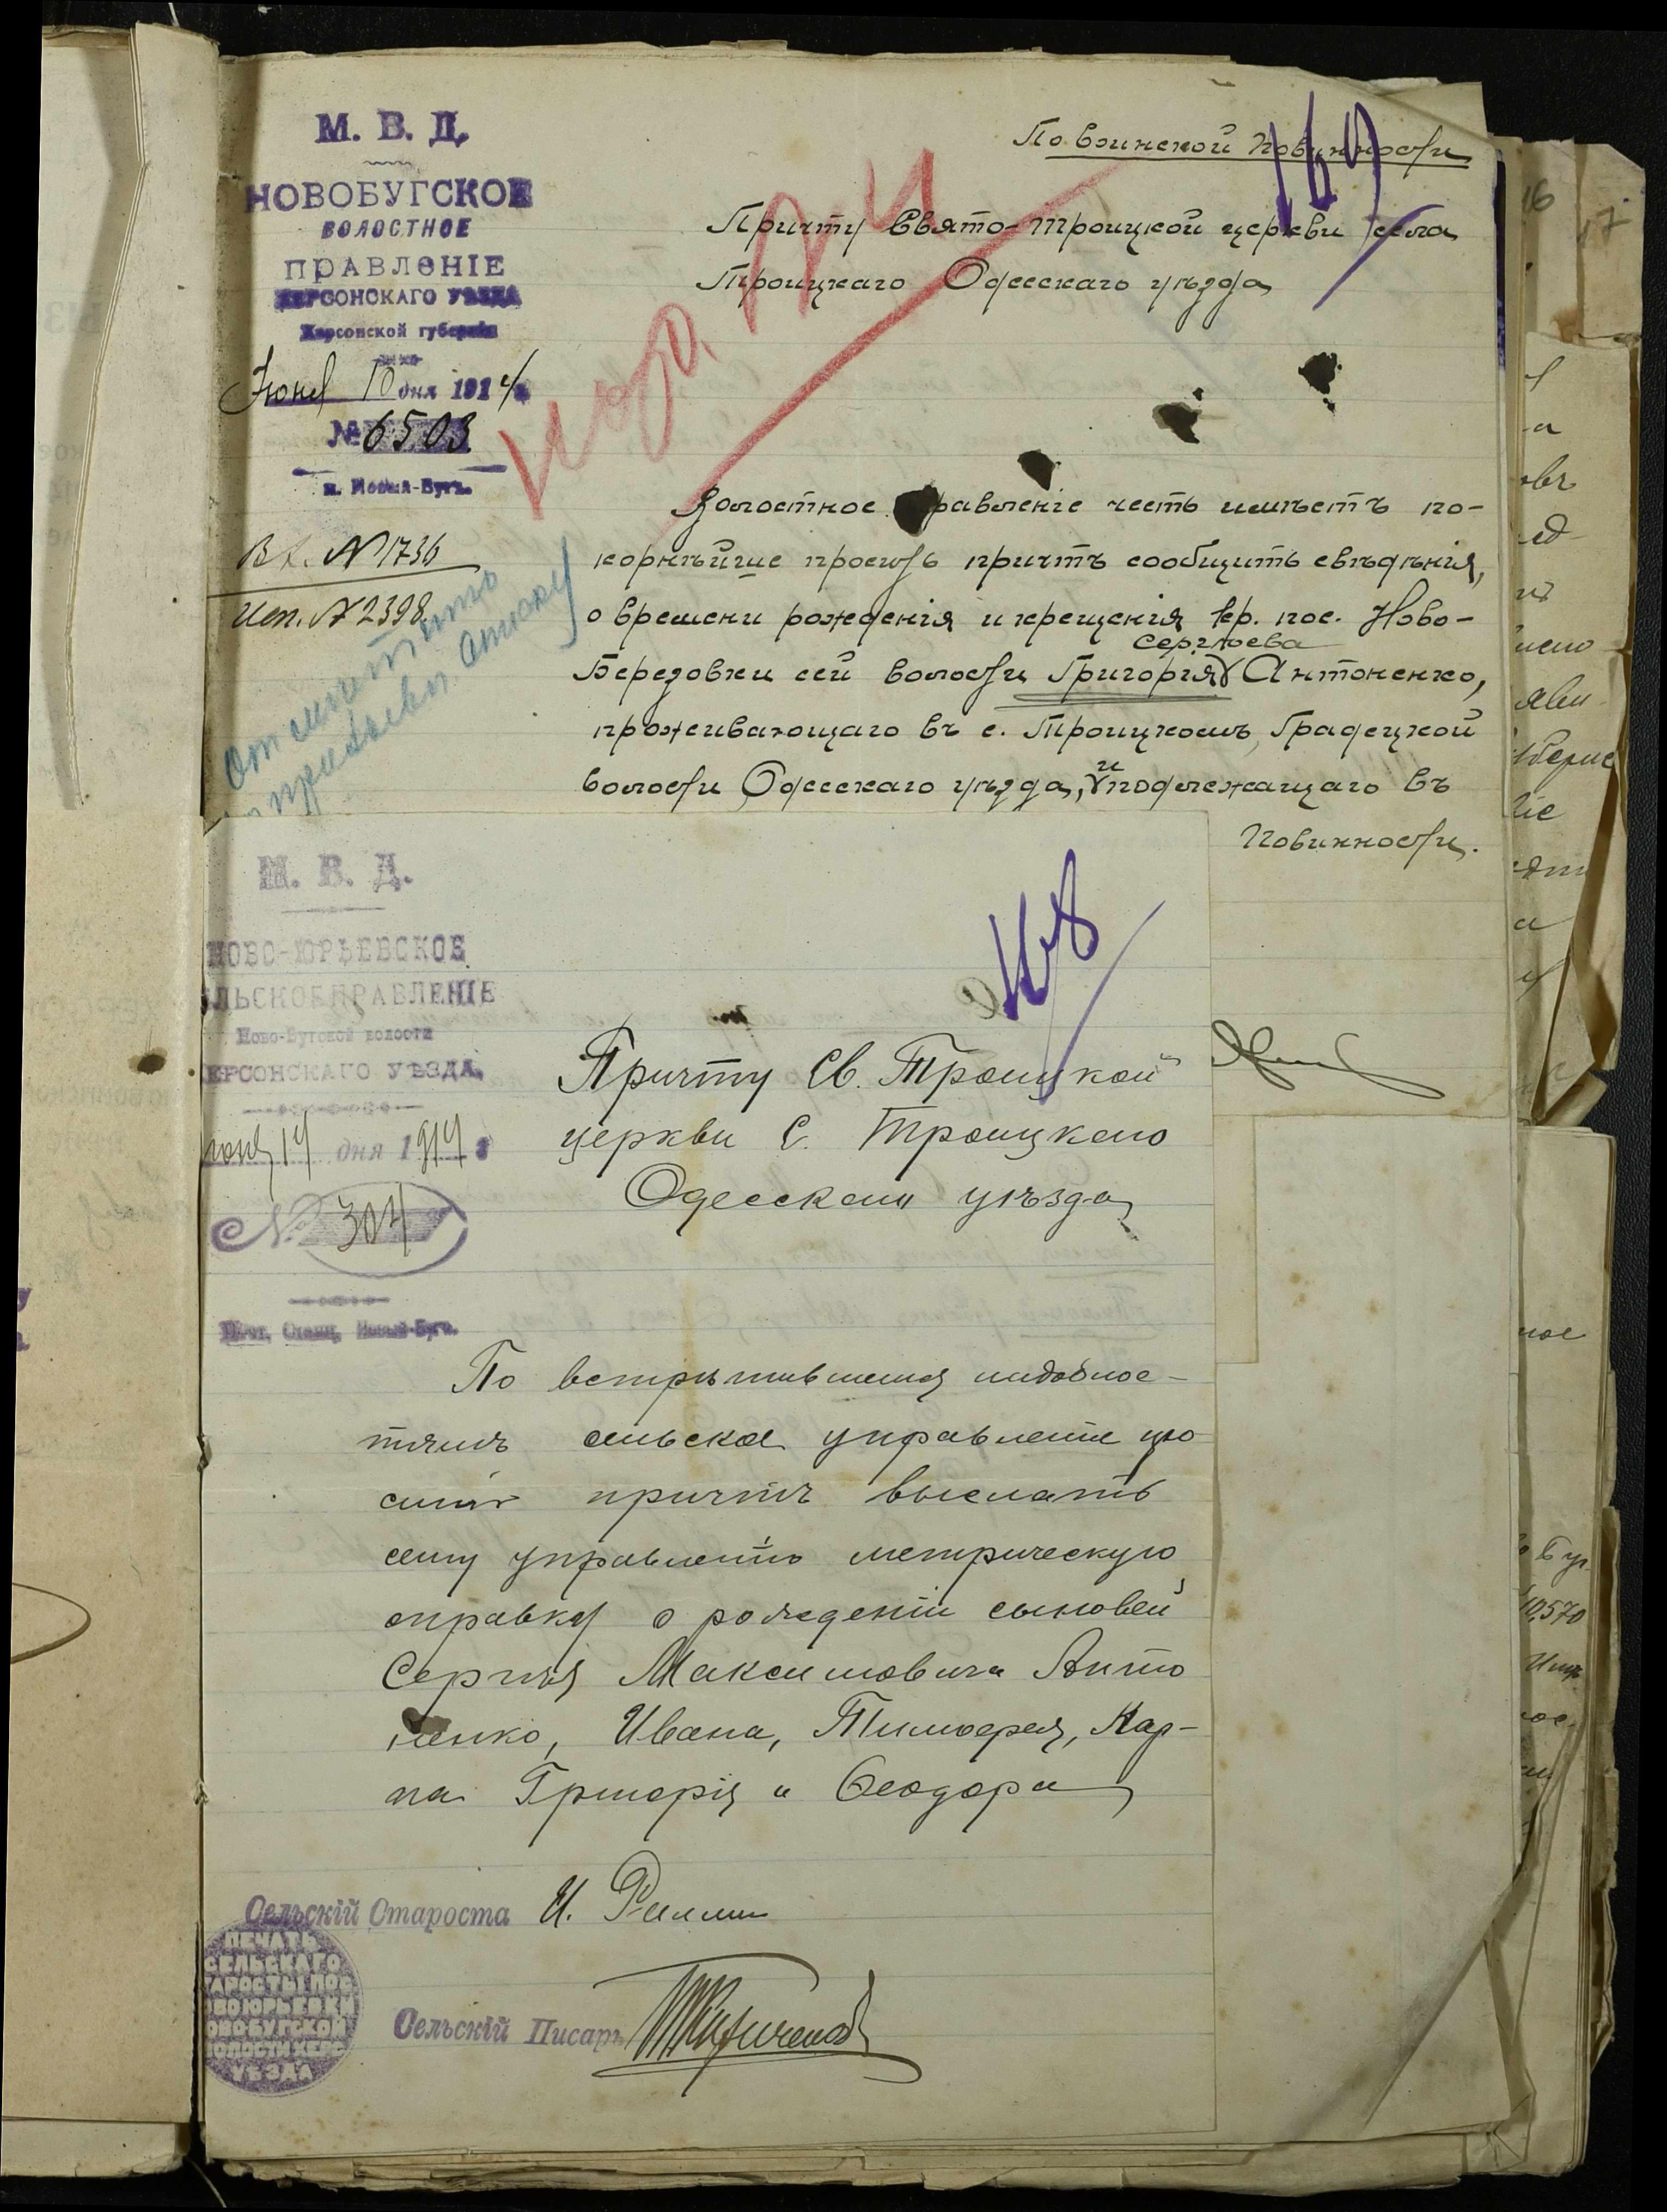 М. В. Д.
НОВОБУГСКОЕ
ВОЛОСТНОЕ
ПРАВЛЕНІЕ
ХЕРСОНСКАГО УѢЗДА
Херсонской губерніи
Іюня 10 дня 1914 г.
№ 6503
м. Новый-Бугъ.
Вх. № 1736
Исп. № 2398
По воинской повинности
169
Причту Свято-Троицкой церкви села
Троицкаго Одесскаго уѣзда
Волостное правленіе честь имѣетъ по-
корнѣйше просить причтъ сообщить свѣдѣнія,
о времени рожденія и крещенія кр. пос. Ново-
Сергѣева
Березовки сей волости Григорія Антоненко,
проживающаго въ с. Троицкомъ, Градецкой
волости Одесскаго уѣзда, и подлежащаго въ
повинности.
М. В. Д.
НОВО-ЮРЬЕВСКОЕ
ЕЛЬСКОЕ ПРАВЛЕНІЕ
Ново-Бугской волости
ЕРСОНСКАГО УѢЗДА
іюня 14 дня 1914 г
№ 304
Почт. Станц. Новый-Бугъ.
168
Причту Св. Троицкой
церкви С. Троицкаго
Одесскаго уѣзда
По встрѣтившейся надобнос-
тямъ сельское управленіе про
ситъ причтъ выслать
сему управленію метрическую
справку о рожденіи сыновей
Сергѣя Максимовича Анто
ненко, Ивана, Тимофея, Кар-
па Григорія и Ѳеодора
Сельскій Староста И.
Сельскій Писарь
ПЕЧАТЬ
СЕЛЬСКАГО
АРОСТЫ ПОС
ВОЮРЬЕВКИ
ОВОБУГСКОЙ
ОЛОСТИ ХЕРС
УѢЗДА